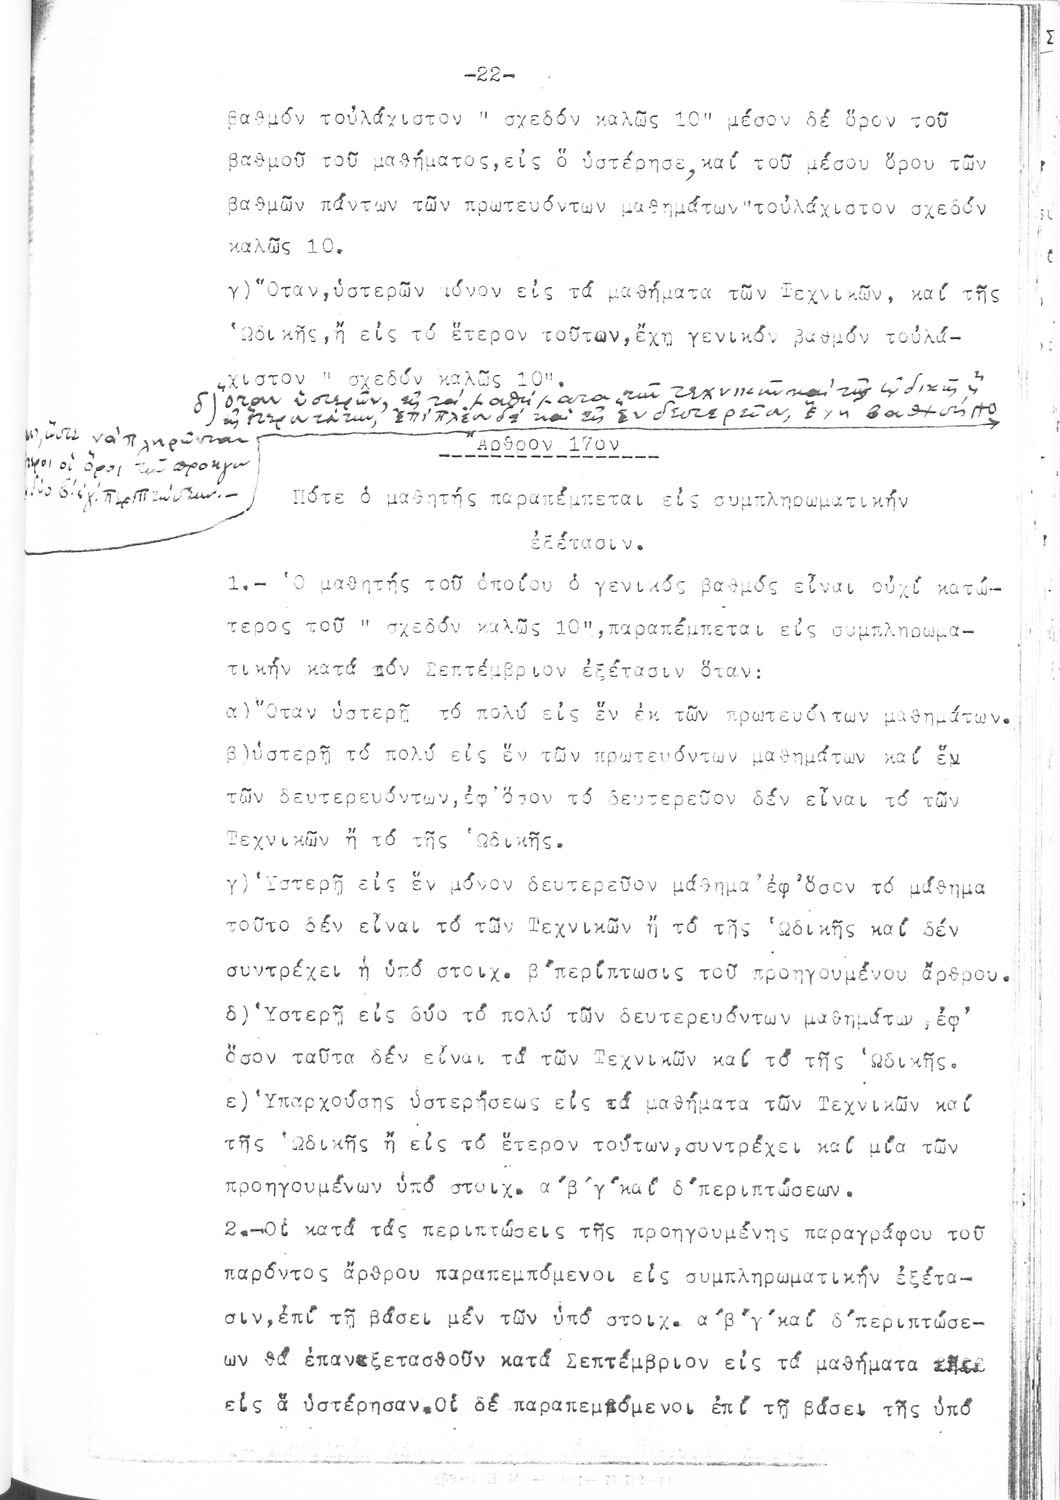 -22-
βαθμόν τοὐλάχιστον " σχεδόν καλῶς 10" μέσον δέ ὅρον τοῦ
βαθμοῦ τοῦ μαθήματος,εἰς ὅ ὑστέρησε,καί τοῦ μέσου ὅρου τῶν
βαθμῶν πάντων τῶν πρωτευόντων μαθημάτων"τοὐλάχιστον σχεδόν
καλῶς 10.
γ)"Οταν,ὑστερῶν μόνον εἰς τά μαθήματα τῶν Τεχνικῶν, καί τῆς
Ὠδικῆς,ἤ εἰς τό ἕτερον τοῦτων,ἔχη γενικόν βαθμόν τοὐλά-
χιστον " σχεδόν καλῶς 10".
δ) ὅταν ὑστερῶν, εἰς τά μαθήματα τῶν τεχνικῶν καί τῆς ὠδικῆς ἤ
ἐπί πλέον δέ καί εἰς ἕν δευτερεῦον, ἔχη βαθμόν
ὥστε νά πληρῶνται
οἱ ὅροι τῶν προηγου
Ἄρθρον 17ον
Πότε ὁ μαθητής παραπέμπεται εἰς συμπληρωματικήν
ἐξέτασιν.
1.- Ὁ μαθητής τοῦ ὁποίου ὁ γενικός βαθμός εἶναι οὐχί κατώ-
τερος τοῦ " σχεδόν καλῶς 10",παραπέμπεται εἰς συμπληρωμα-
τικήν κατά τόν Σεπτέμβριον ἐξέτασιν ὅταν:
α)"Οταν ὑστερῇ τό πολύ εἰς ἕν ἐκ τῶν πρωτευόντων μαθημάτων.
β)ὑστερῇ τό πολύ εἰς ἕν τῶν πρωτευόντων μαθημάτων καί ἕν
τῶν δευτερευόντων,ἐφ'ὅσον τό δευτερεῦον δέν εἶναι τό τῶν
Τεχνικῶν ἤ τό τῆς Ὠδικῆς.
γ)Ὑστερῇ εἰς ἕν μόνον δευτερεῦον μάθημα'ἐφ'ὅσον τό μάθημα
τοῦτο δέν εἶναι τό τῶν Τεχνικῶν ἤ τό τῆς Ὠδικῆς καί δέν
συντρέχει ἡ ὑπό στοιχ. β'περίπτωσις τοῦ προηγουμένου ἄρθρου.
δ)Ὑστερῇ εἰς δύο τό πολύ τῶν δευτερευόντων μαθημάτων,ἐφ'
ὅσον ταῦτα δέν εἶναι τά τῶν Τεχνικῶν καί τό τῆς Ὠδικῆς.
ε)Ὑπαρχούσης ὑστερήσεως εἰς τά μαθήματα τῶν Τεχνικῶν καί
τῆς Ὠδικῆς ἤ εἰς τό ἕτερον τούτων,συντρέχει καί μία τῶν
προηγουμένων ὑπό στοιχ. α'β'γ'καί δ'περιπτώσεων.
2.-Οἱ κατά τάς περιπτώσεις τῆς προηγουμένης παραγράφου τοῦ
παρόντος ἄρθρου παραπεμπόμενοι εἰς συμπληρωματικήν ἐξέτα-
σιν,ἐπί τῇ βάσει μέν τῶν ὑπό στοιχ. α'β'γ'καί δ'περιπτώσε-
ων θά ἐπανεξετασθοῦν κατά Σεπτέμβριον εἰς τά μαθήματα
εἰς ἅ ὑστέρησαν.Οἱ δέ παραπεμπόμενοι ἐπί τῇ βάσει τῆς ὑπό